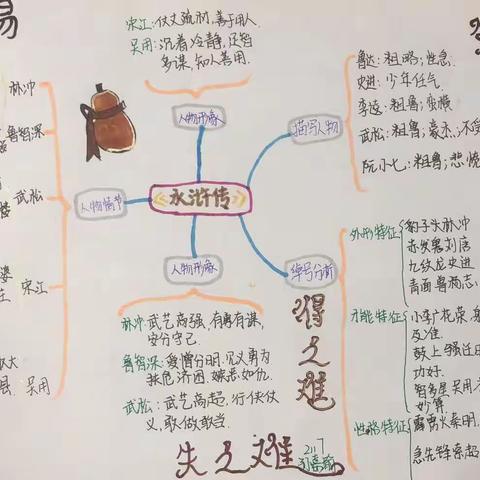 易
宋江:仗义疏财,善于用人.
吴用:沉着冷静,足智
多谋,知人善用.
林冲
鲁智深
武松
宋江
吴用
人物情节
人物形象
描写人物
水浒传
人物形象
绰号分析
鲁达:粗略;性急.
史进:少年任气
李逵:粗鲁;蛮横
武松:粗鲁;豪杰,不受
阮小七:粗鲁;悲愤
外形特征
豹子头林冲
赤发鬼刘唐
九纹龙史进
青面兽杨志
才能特征
小李广花荣,
鼓上蚤迁
功好.
智多星吴用
妙算.
性格特征
霹雳火秦明.
急先锋索超
林冲:武艺高强,有勇有谋,
安分守己.
鲁智深:爱憎分明,见义勇为
扶危济困,嫉恶如仇.
武松:武艺高超,行侠仗
义,敢做敢当.
得之难
失之难
217